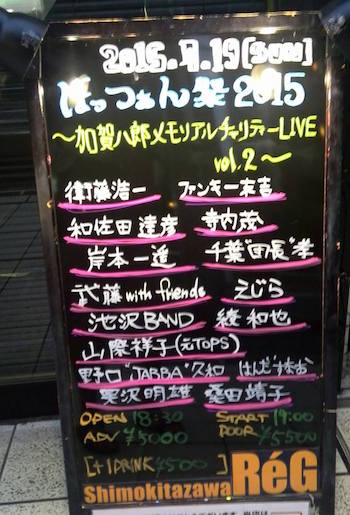 2015.7.19[SUN]
ぼっつぁん祭2015
～加賀八郎メモリアルチャリティーLIVE
vol.2～
衛藤浩一 ファンキー末吉
和佐田達彦 寺内茂
岸本一遥 千葉"団長"孝
武藤with friends えじら
池沢BAND 綾和也
山際祥子(元TOPS)
野口"JABBA"久和 はんだすなお
栗沢明雄 桑田靖子
OPEN 18:30 START 19:00
ADV ¥5000 DOOR ¥5500
[+1DRINK ¥500]
Shimokitazawa RéG